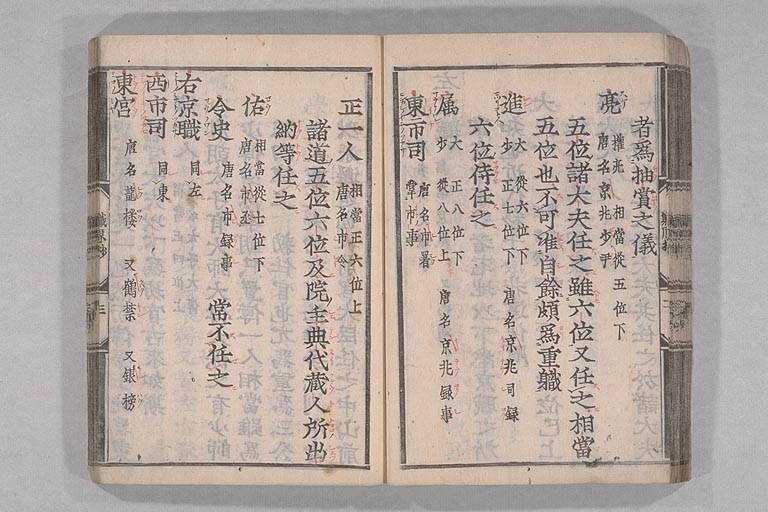 者爲抽賞之儀
亮 權亮 相當從五位下
唐名京兆少尹
五位諸大夫任之雖六位又任之相當
五位也不可准自餘頗爲重職
進 大 從六位下 唐名京兆司録
少 正七位下
六位侍任之
属 大 正八位下 唐名京兆録事
少 從八位上
東市司 唐名市署
掌市事
正一人 相當正六位上
唐名市令
諸道五位六位及院主典代蔵人所出
納等任之
佑 相當從七位下
唐名市丞
令史 唐名市録事 當不任之
右京職 同左
西市司 同東
東宮 唐名龍樓 又鶴禁 又銀榜
職原抄
三